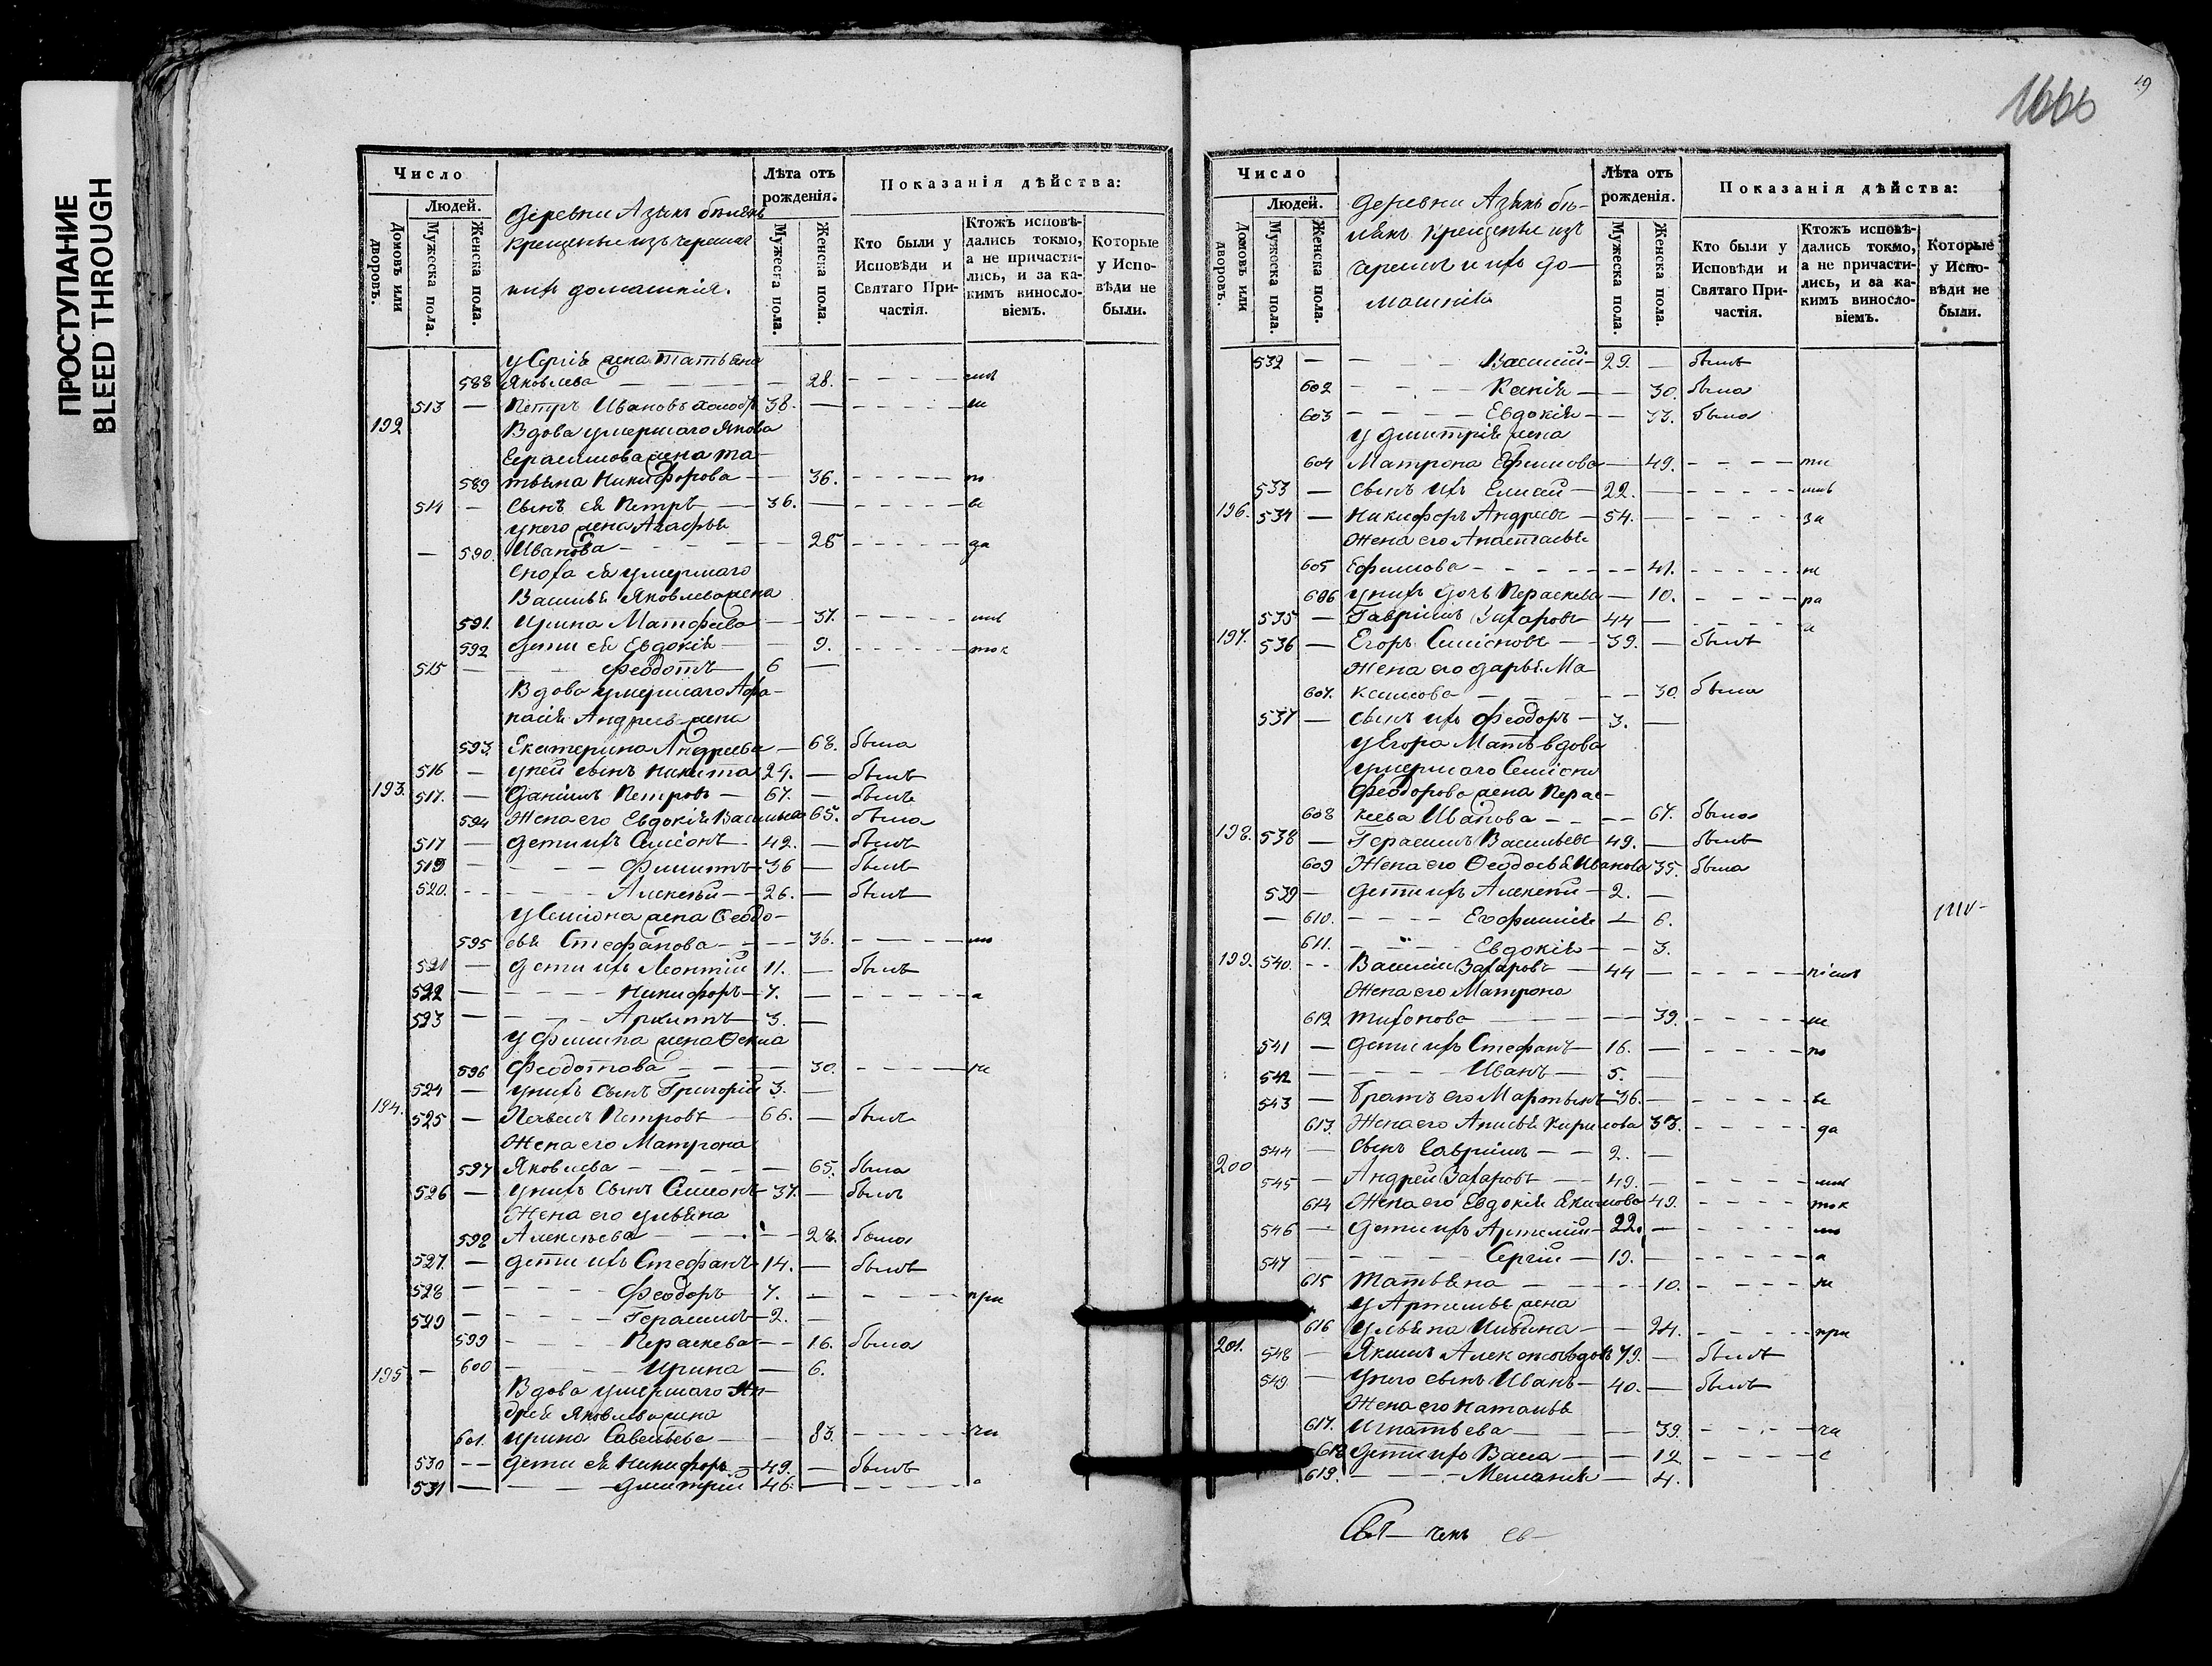 ПРОСТУПАНИЕ
BLEED THROUGH
Число
Людей.
Домовъ или дворовъ.
Мужеска пола.
Женска пола.
деревни Азъял
крещеные изъ черемис
ихъ домашнія.
Лѣта отъ рожденія.
Мужеска пола.
Женска пола.
Показанія дѣйства:
Кто были у Исповѣди и Святаго Причастія.
Ктожъ исповѣдались токмо, а не причастились, и за какимъ винословіемъ.
Которые у Исповѣди не были.
у Сергія жена Татьяна
588 Яковлева — 28.
513 — Петръ Ивановъ холос 38. —
192 Вдова умершаго Якова
Герасимова жена Та-
589 тьяна Никифорова — 36. по
514 — Сынъ ея Петръ 36. — ве
у него жена Агафья
— 590. Иванова — 25 да
Сноха ея умершаго
Василья Яковлева жена
591. Ирина Матфеева — 37.
592 дети ея Евдокія — 9. ток
515 — Феодотъ 6 —
Вдова умершаго Афа-
насія Андреев жена
593. Екатерина Андреева — 68. была
516 — у ней сынъ Никита 29. — былъ
193. 517. — Даніилъ Петровъ — 67. — былъ
594 Жена его Евдокія Васильева 65. была
517 — дети ихъ Симіонъ 42. — былъ
519 — Филиппъ 36 — былъ
520. — Алексей 26. — былъ
у Симіона жена Феодо-
595 сья Стефанова — 36. мо
521 — дети ихъ Леонтій 11. — былъ
522 — Никифоръ 7. — а
523 — Архиппъ 3. —
у Филиппа жена Фекла
596 Феодотова — 30. не
524 — у нихъ сынъ Григорій 3. —
194. 525 — Павелъ Петровъ 66. — былъ
Жена его Матрона
597 Яковлева — 65. была
526 — у нихъ сынъ Симеонъ 37. — былъ
Жена его Ульяна
598 Алексеева — 28. была
527. — дети ихъ Стефанъ 14. — былъ
528 — Феодоръ 7. — при
529 — Герасимъ 2. —
599 — Пераскева — 16. была
195 — 600 — Ирина — 6.
Вдова умершаго Ан-
дрея Яковлева жена
601. Ирина Савельева — 83. ча
530 — дети ея Никифоръ 49. — былъ
531 — Дмитрій 46. — а
49
1666
Число
Людей.
Домовъ или дворовъ.
Мужеска пола.
Женска пола.
деревни Азъял
крещеные изъ
черемис и ихъ до-
машнія
Лѣта отъ рожденія.
Мужеска пола.
Женска пола.
Показанія дѣйства:
Кто были у Исповѣди и Святаго Причастія.
Ктожъ исповѣдались токмо, а не причастились, и за какимъ винословіемъ.
Которые у Исповѣди не были.
532 — Василій 29. — былъ
602 — Ксенія — 30. была
603 — Евдокія — 33. была
у Дмитрія жена
604 Матрона Ефимова — 49. ти
533 — сынъ ихъ Елисей 22. —
196. 534 — Никифоръ Андреевъ 54. — за
Жена его Анастасья
605 Ефимова — 41. не
606 у нихъ дочь Пераскева — 10. ра
535 — Гавріилъ Захаровъ 44 —
197. 536 — Егоръ Симіоновъ 39. — былъ
Жена его Дарья Ма-
607. ксимова — 30. была
537 — сынъ ихъ Феодоръ 3. —
у Егора мать вдова
умершаго Симіона
Феодорова жена Перас-
608 кева Иванова — 67. была
198. 538 — Герасимъ Васильевъ 49. — былъ
609 Жена его Феодосья Иванова 35. была
539 — дети ихъ Алексей 2. —
— 610. Евфимія — 6.
611. — Евдокія — 3.
199. 540. — Василій Захаровъ 44 — ніемъ
Жена его Матрона
612 Тихонова — 39. не
541 — дети ихъ Стефанъ 16. — по
542 — Иванъ 5. —
543 — Братъ его Мартынъ 36. — ве
613. Жена его Анисья Кирилова 33. да
544 — сынъ Гавріилъ 2. —
200 545 — Андрей Захаровъ 49. —
614 Жена его Евдокія Якимова 49. ток
546 — дети ихъ Артемій 22. — мо
547 — Сергій 19. — а
615 Татьяна — 10. не
у Артемья жена
616 Ульяна — 24. при
201. 548 — Якимъ Алексеевъ вдовъ 79. — былъ
549 — у него сынъ Иванъ 40. — былъ
Жена его Наталья
617. Игнатьева — 39. ча
618 дети ихъ Васса — 12 с
619. — Меланія — 4.